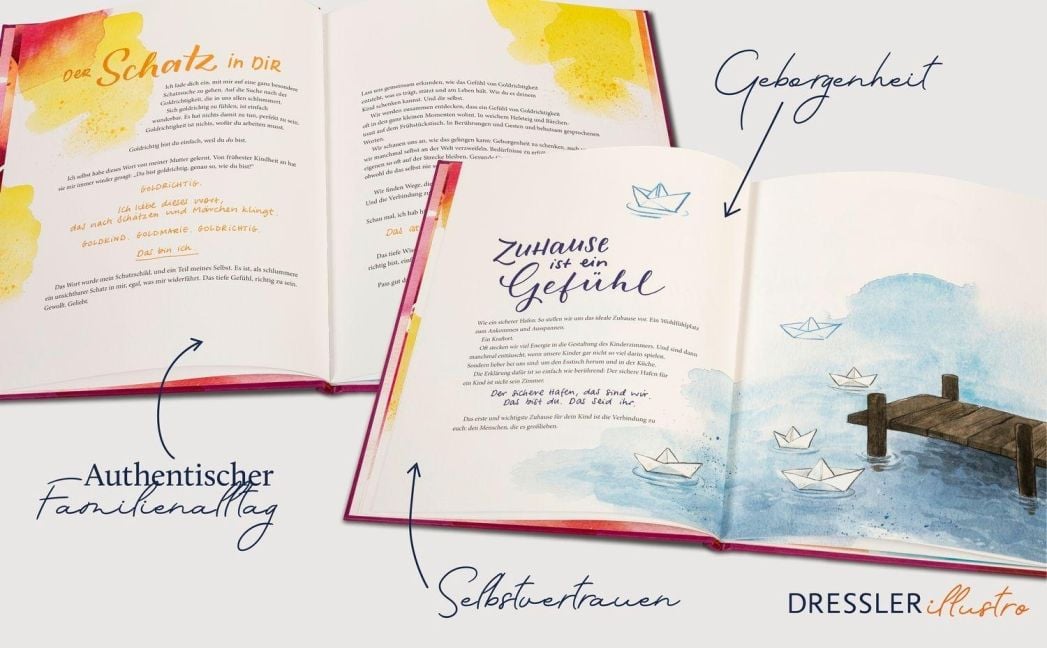 Der Schatz in Dir
Ich lade dich ein, mit mir auf eine ganz besondere
Schatzsuche zu gehen. Auf die Suche nach der
Goldrichtigkeit, die in uns allen schlummert.
Sich goldrichtig zu fühlen, ist einfach
wunderbar. Es hat nichts damit zu tun, perfekt zu sein.
Goldrichtigkeit ist nichts, wofür du arbeiten musst.
Goldrichtig bist du einfach, weil du du bist.
Ich selbst habe dieses Wort von meiner Mutter gelernt. Von frühester Kindheit an hat
sie mir immer wieder gesagt: „Du bist goldrichtig, genau so, wie du bist!“
GOLDRICHTIG.
Ich liebe dieses Wort,
das nach Schätzen und Märchen klingt.
GOLDKIND. GOLDMARIE. GOLDRICHTIG.
Das bin ich.
Das Wort wurde mein Schutzschild, und ein Teil meines Selbst. Es ist, als schlummere
ein unsichtbarer Schatz in mir, egal, was mir widerfährt. Das tiefe Gefühl, richtig zu sein.
Gewollt. Geliebt.
Lass uns gemeinsam erkunden, wie das Gefühl von Goldrichtigkeit
entsteht, was es trägt, stützt und am Leben hält. Wie du es deinem
Kind schenken kannst. Und dir selbst.
Wir werden zusammen entdecken, dass ein Gefühl von Goldrichtigkeit
oft in den ganz kleinen Momenten wohnt. In weichem Hefeteig und Bärchen-
wurst auf dem Frühstückstisch. In Berührungen und Gesten und behutsam gesprochenen
Worten.
Wir schauen uns an, wie das gelingen kann: Geborgenheit zu schenken, auch
wir manchmal selbst an der Welt verzweifeln. Bedürfnisse zu
eigenen so oft auf der Strecke bleiben.
obwohl du das selbst nie
Wir finden Wege, die
Und die Verbindung zu
Schau mal, ich hab
Das ist
Das tiefe
richtig bist,
Pass gut
Geborgenheit
ZUHAUSE
ist ein
Gefühl
Wie ein sicherer Hafen: So stellen wir uns das ideale Zuhause vor. Ein Wohlfühlplatz
zum Ankommen und Ausspannen.
Ein Kraftort.
Oft stecken wir viel Energie in die Gestaltung des Kinderzimmers. Und sind dann
manchmal enttäuscht, wenn unsere Kinder gar nicht so viel darin spielen.
Sondern lieber bei uns sind: um den Esstisch herum und in der Küche.
Die Erklärung dafür ist so einfach wie berührend: Der sichere Hafen für
ein Kind ist nicht sein Zimmer.
Der sichere Hafen, das sind wir.
Das bist du. Das seid ihr.
Das erste und wichtigste Zuhause für dein Kind ist die Verbindung zu
euch: den Menschen, die es großlieben.
Authentischer
Familienalltag
Selbstvertrauen
DRESSLER illustro